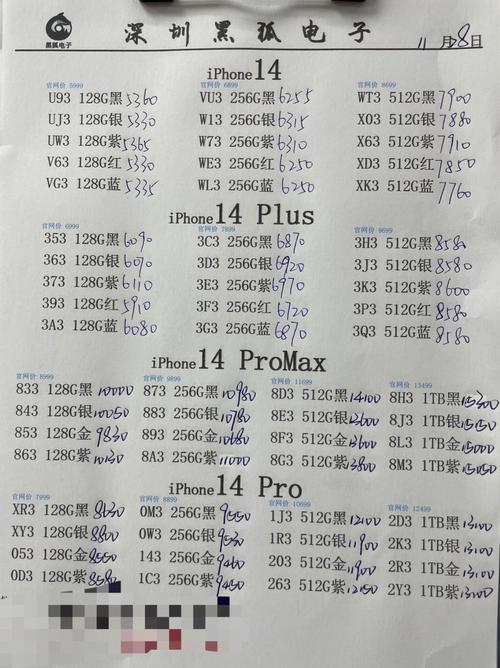 黑狐电子 深圳黑狐电子 11月8日
iPhone14
官网价 5999 官网价 6899 官网价 8699
U93 128G黑 5360 VU3 256G黑 6255 WT3 512G黑 7900
UJ3 128G银 5330 W13 256G银 6315 X03 512G银 7880
UW3 128G紫 5365 W73 256G紫 6310 X63 512G紫 7910
V63 128G红 5330 WE3 256G红 6250 XD3 512G红 7850
VG3 128G蓝 5335 WL3 256G蓝 6250 XK3 512G蓝 7760
iPhone14 Plus
官网价 6999 官网价 7899 官网价 9699
353 128G黑 6090 3C3 256G黑 6870 3H3 512G黑 8580
363 128G银 6070 3D3 256G银 6920 3J3 512G银 8580
373 128G紫 6110 3E3 256G紫 6970 3K3 512G紫 8600
393 128G红 5910 3F3 256G红 6720 3P3 512G红 8580
3A3 128G蓝 6080 3G3 256G蓝 6870 3Q3 512G蓝 8580
iPhone14 ProMax
官网价 8999 官网价 9899 官网价 11699 官网价 13499
833 128G黑 10000 873 256G黑 10980 8D3 512G黑 14100 8H3 1TB黑 15300
843 128G银 10050 883 256G银 10980 8E3 512G银 13600 8J3 1TB银 15150
853 128G金 9830 893 256G金 10680 8F3 512G金 13600 8L3 1TB金 15000
863 128G紫 10130 8A3 256G紫 11000 8G3 512G紫 13800 8M3 1TB紫 15050
iPhone14 Pro
官网价 7999 官网价 8899 官网价 10699 官网价 12499
XR3 128G黑 8630 0M3 256G黑 9550 1J3 512G黑 12100 2D3 1TB黑 13100
XY3 128G银 8800 0W3 256G银 9530 1R3 512G银 11900 2K3 1TB银 13100
053 128G金 8550 143 256G金 9460 203 512G金 11900 2R3 1TB金 13100
0D3 128G紫 8580 1C3 256G紫 9450 263 512G紫 12150 2Y3 1TB紫 13100